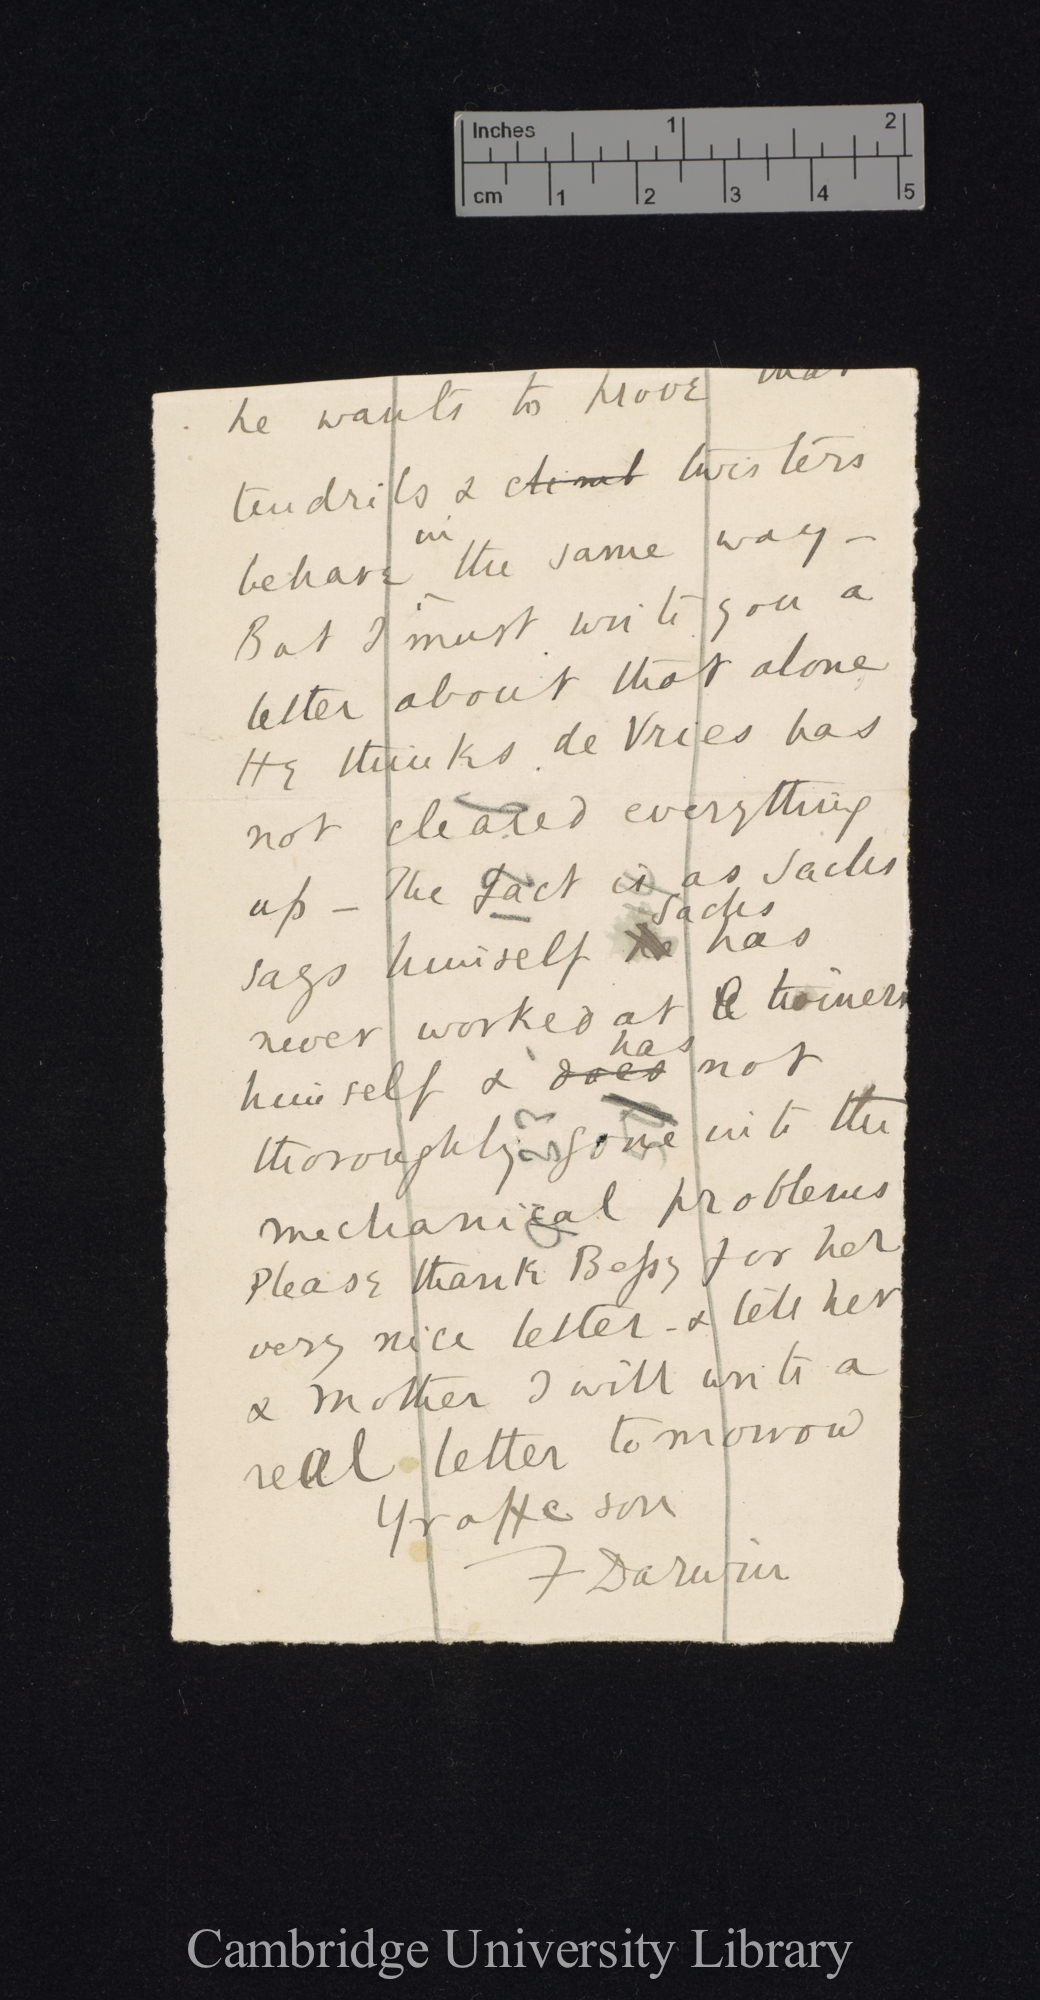 Inches 1 2
cm 1 2 3 4 5
he wants to prove that
tendrils & climb twisters
behave in the same way –
But I must write you a
letter about that alone
He thinks de Vries has
not cleared everything
up – The fact is as Sachs
says himself he Sachs has
never worked at twiners
himself & does has not
thoroughly gone into the
mechanical problems
Please thank Bessy for her
very nice letter – & tell her
& Mother I will write a
real letter tomorrow
Yr affe son
F Darwin
Cambridge University Library